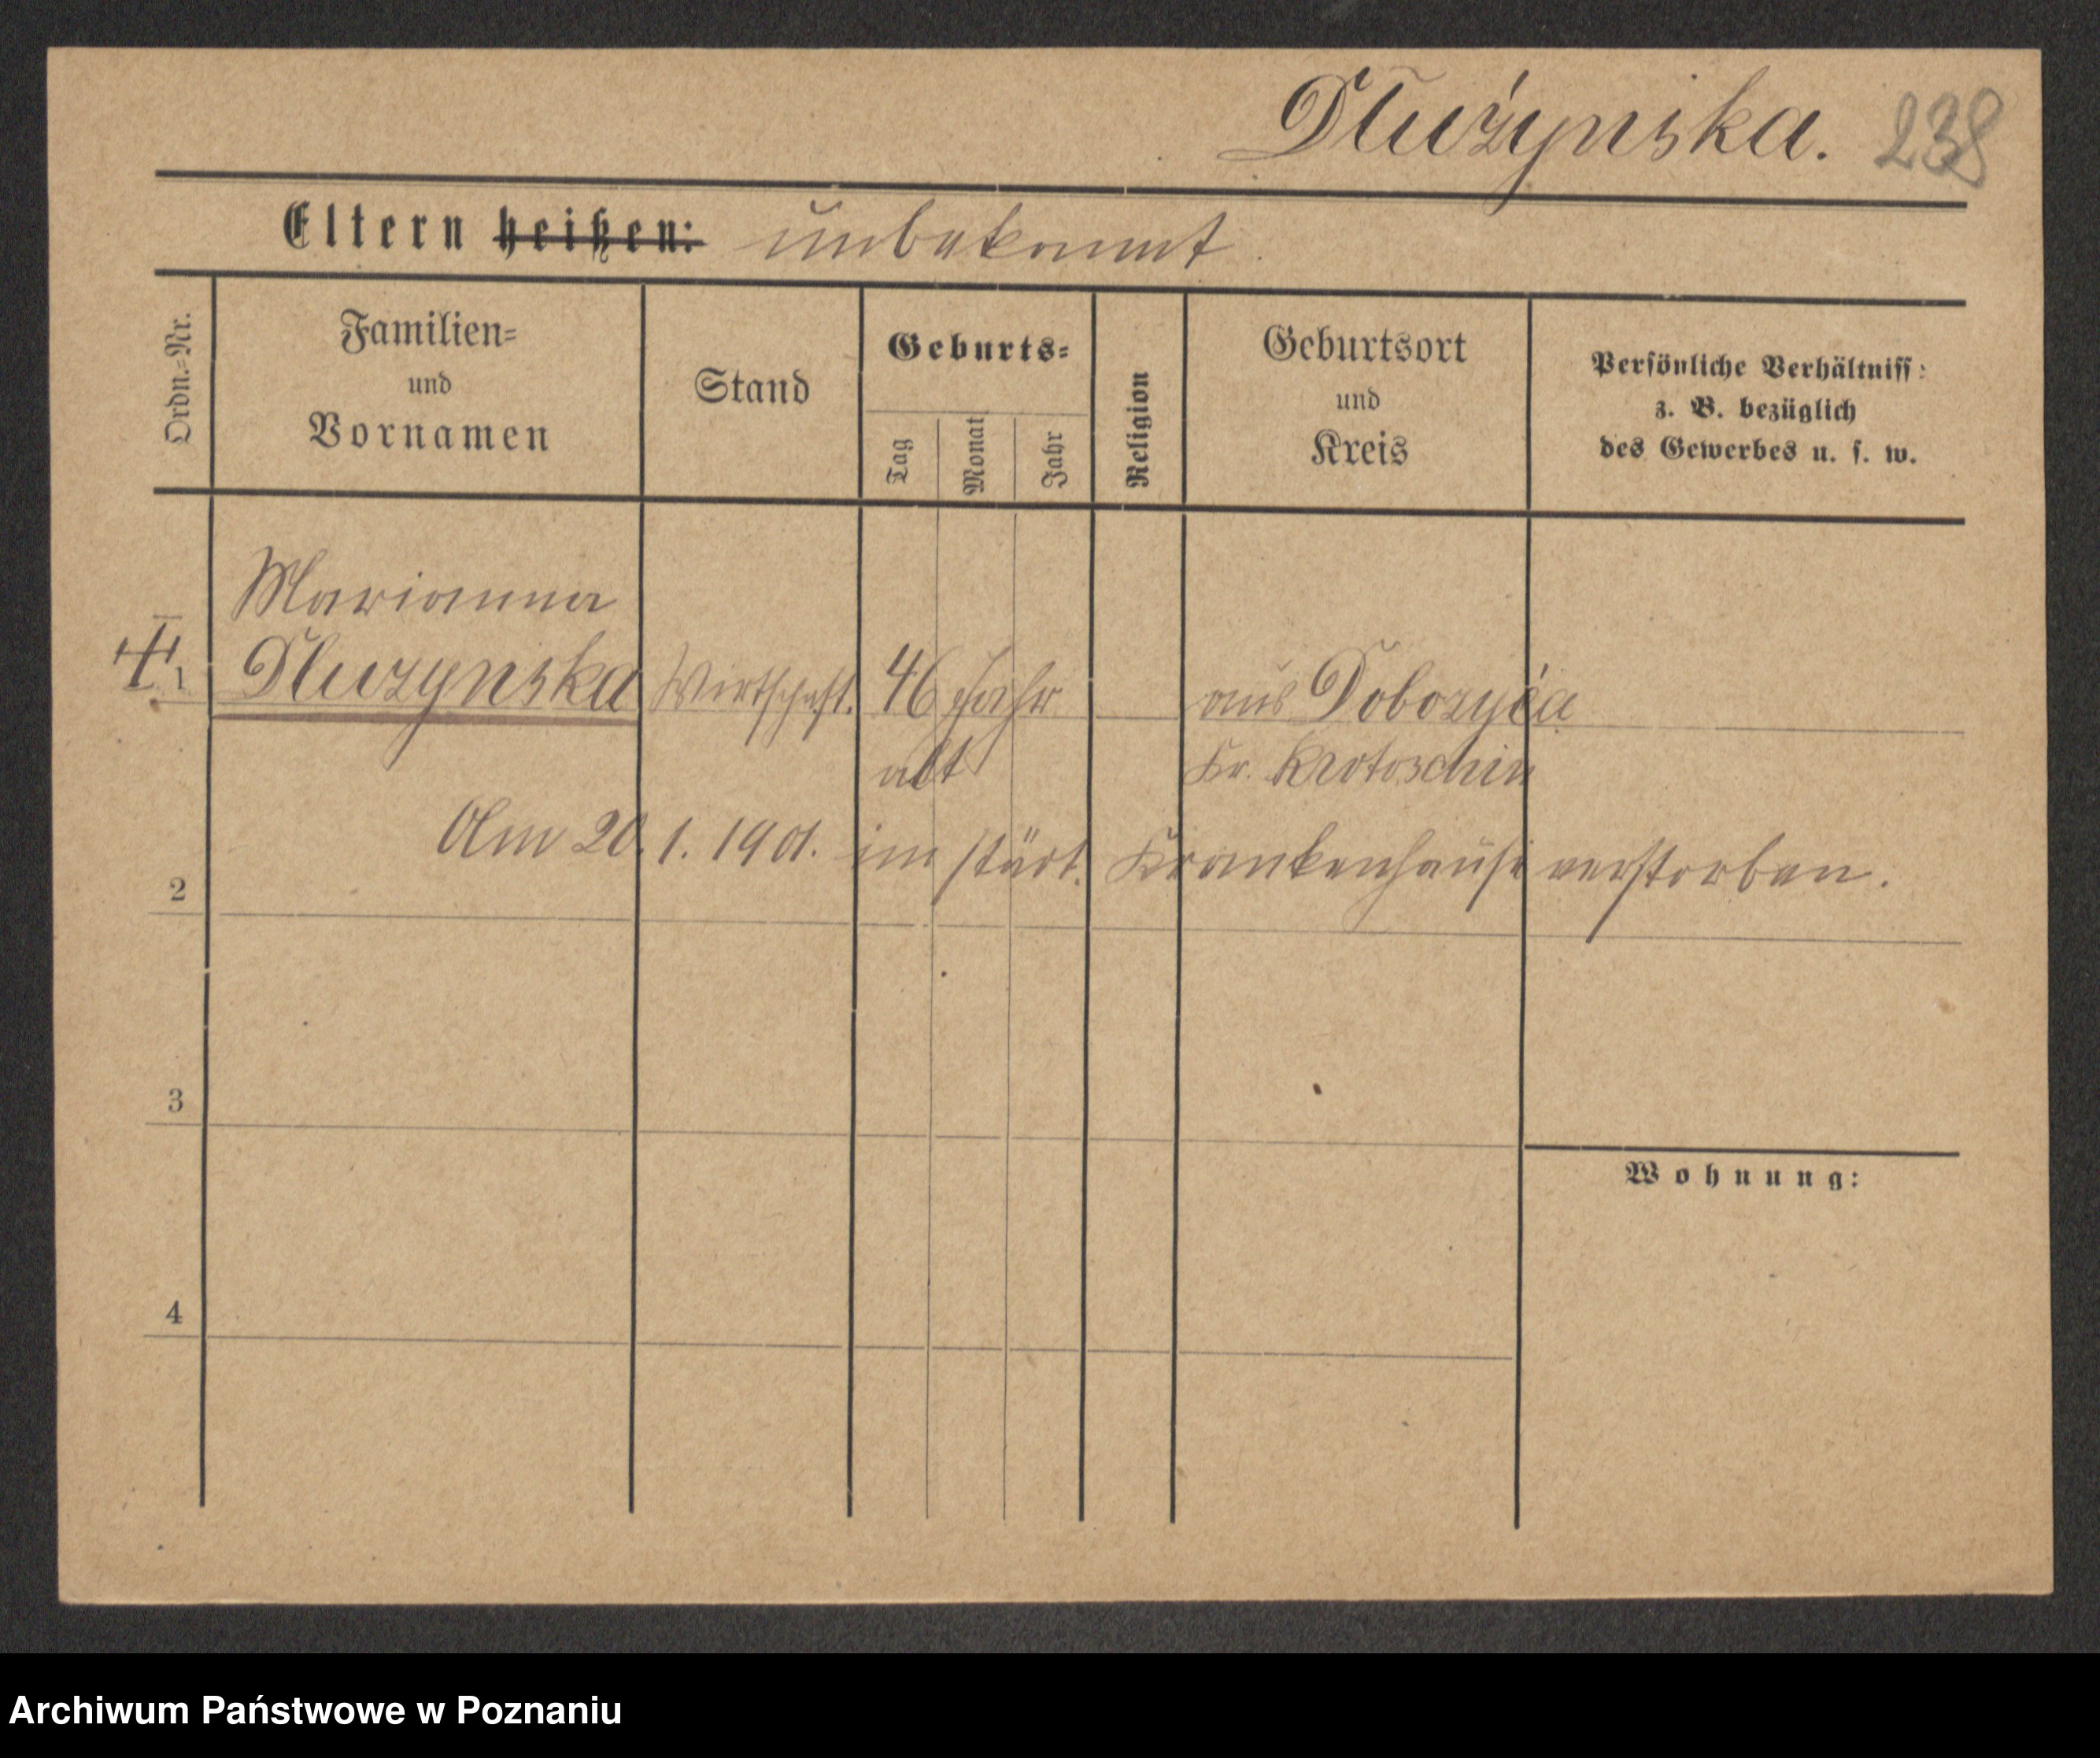 Dłużynska. 238
Eltern heißen: unbekannt.
Ordn.=Nr.
Familien=
und
Vornamen
Stand
Geburts=
Tag
Monat
Jahr
Religion
Geburtsort
und
Kreis
Persönliche Verhältniss:
z. B. bezüglich
des Gewerbes u. s. w.
Marianna
1 Dluzynska Wirtschaft. 46 Jahr aus Dobozyća
alt Kr. Krotoschin
Am 20. 1. 1901. im städt. Krankenhause verstorben.
2
3
Wohnung:
4
Archiwum Państwowe w Poznaniu